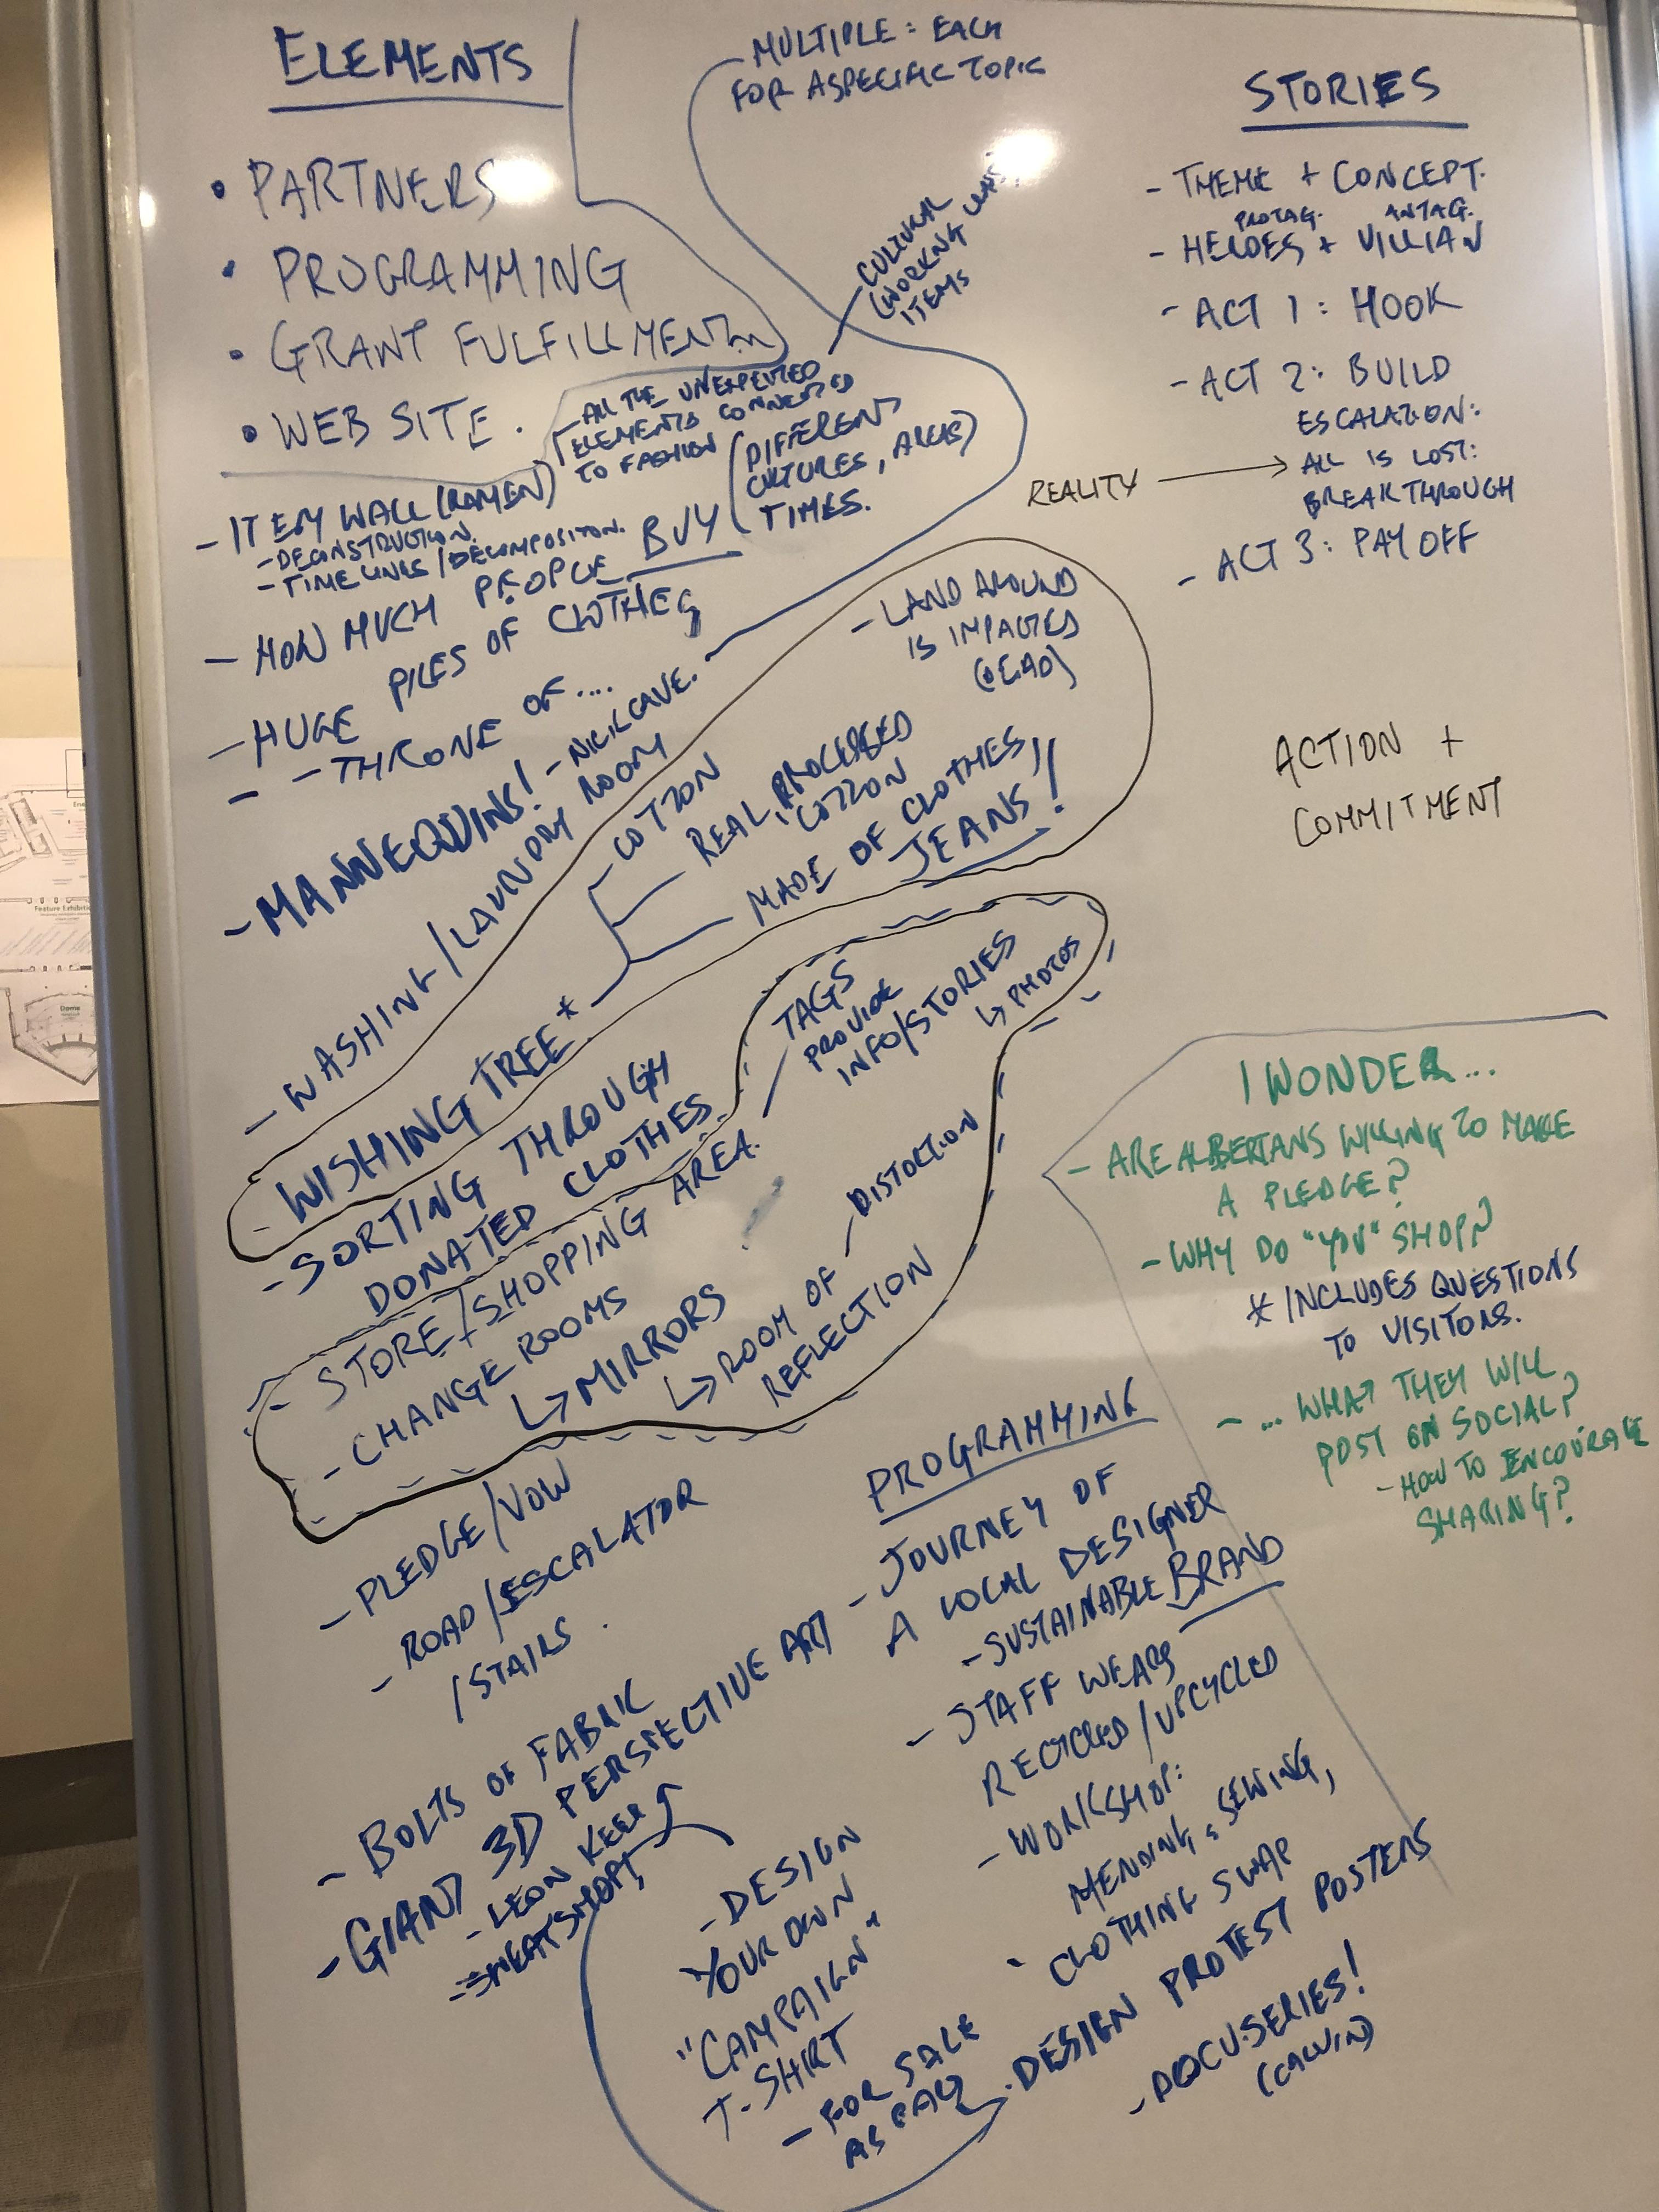 ELEMENTS
• PARTNERS
• PROGRAMMING
• GRANT FULFILLMENT
• WEB SITE.
- ALL THE UNEXPECTED
ELEMENTS CONNECTED
TO FASHION
CULTURAL
(WORKING
ITEMS
- ITEM WALL (RAMEN)
- DECONSTRUCTION.
- TIMELINES/DECOMPOSITION.
- HOW MUCH PEOPLE BUY
(DIFFERENT
CULTURES, AREAS)
TIMES.
- HUGE PILES OF CLOTHES
- - THRONE OF....
- MANNEQUINS! - NICK CAVE.
MULTIPLE: EACH
FOR A SPECIFIC TOPIC
- WASHING/LAUNDRY ROOM
- WISHING TREE*
COTTON
REAL, PROCESSED
COTTON
MADE OF CLOTHES,
JEANS!!
- LAND AROUND
IS IMPACTED
(DEAD)
- SORTING THROUGH
DONATED CLOTHES
- STORE/SHOPPING AREA.
TAGS
PROVIDE
INFO/STORIES
↳ PHOTOS
- CHANGE ROOMS
↳ MIRRORS
↳ ROOM OF
REFLECTION
DISTORTION
- PLEDGE/VOW
- ROAD/ESCALATOR
/STAIRS.
- BOLTS OF FABRIC
- GIANT 3D PERSPECTIVE ART
- LEON KEER
SWEATSHOP!
STORIES
- THEME + CONCEPT.
PROTAG. ANTAG.
- HEROES + VILLIAN
- ACT 1: HOOK
- ACT 2: BUILD
ESCALATION:
REALITY → ALL IS LOST:
BREAKTHROUGH
- ACT 3: PAY OFF
ACTION +
COMMITMENT
I WONDER...
- ARE ALBERTANS WILLING TO MAKE
A PLEDGE?
- WHY DO "YOU" SHOP?
* INCLUDES QUESTIONS
TO VISITORS.
- ... WHAT THEY WILL
POST ON SOCIAL?
- HOW TO ENCOURAGE
SHARING?
PROGRAMMING
- JOURNEY OF
A LOCAL DESIGNER
- SUSTAINABLE BRAND
- STAFF WEARS
RECYCLED/UPCYCLED
- WORKSHOP:
MENDING, SEWING,
CLOTHING SWAP
- DESIGN
YOUR OWN
"CAMPAIGN"
T-SHIRT
- FOR SALE
AS
. DESIGN PROTEST POSTERS
- DOCUSERIES!
(CALVIN)
Feature Exhibition
Dome